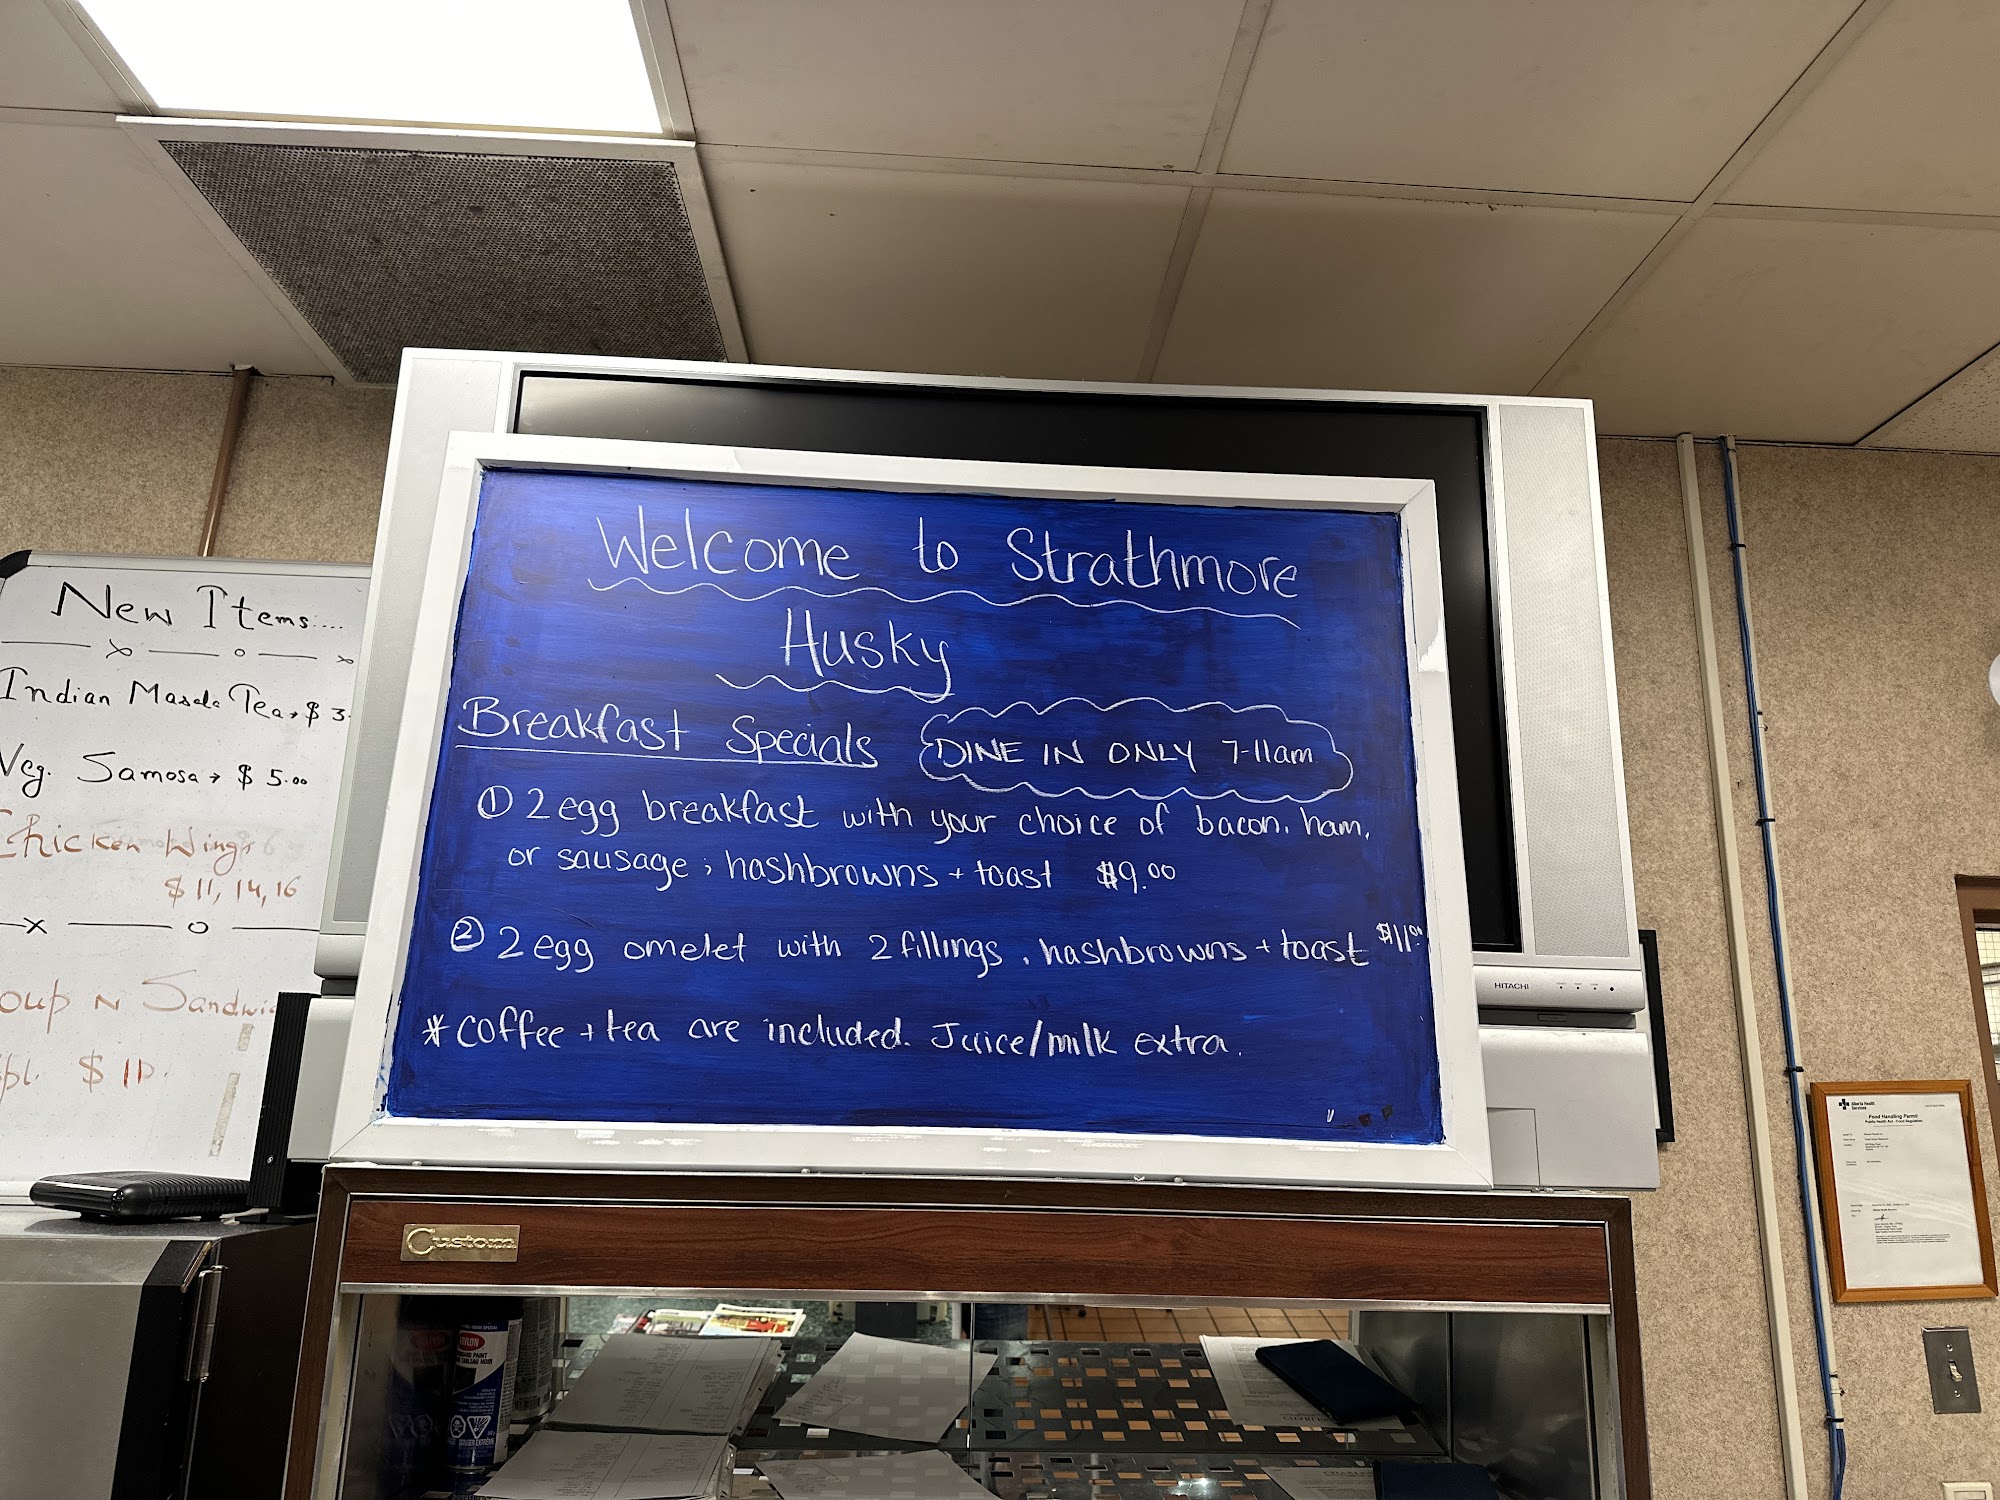 Welcome to Strathmore
Husky
Breakfast Specials
DINE IN ONLY 7-11am
① 2 egg breakfast with your choice of bacon, ham,
or sausage; hashbrowns + toast $9.00
② 2 egg omelet with 2 fillings, hashbrowns + toast $11.00
* coffee + tea are included. Juice/milk extra.
New Items....
Indian Masala Tea → $ 3.
Veg. Samosa → $ 5.00
Chicken Wings
$ 11, 14, 16
oup N Sandwic
pl. $ 10.
HITACHI
Custom
Alberta Health
Services
Food Handling Permit
Public Health Act - Food Regulation